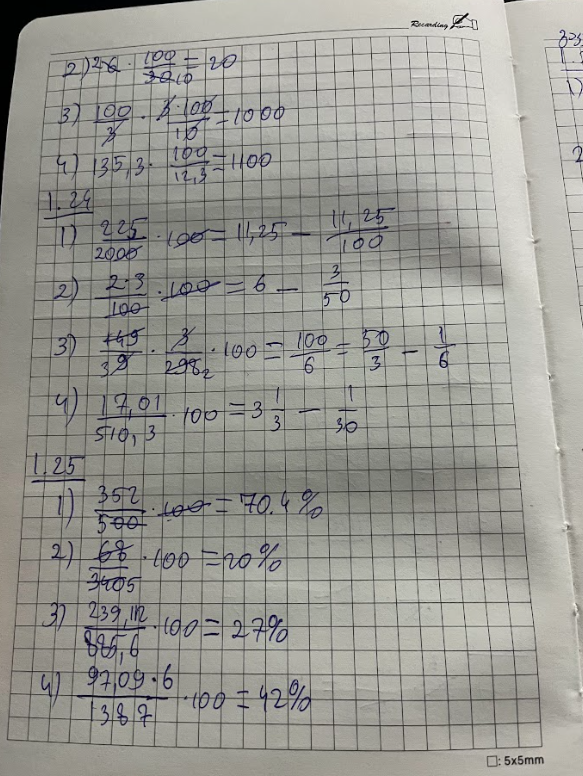 Recarding
2) 26 · 100/30 10 = 20
3) 100/3 · 3·100/10 = 1000
4) 135,3 · 100/12,3 = 1100
1.24
1) 225/2000 · 100 = 11,25 — 11,25/100
2) 2·3/100 · 100 = 6 — 3/50
3) 149/39 · 3/298 2 · 100 = 100/6 = 50/3 — 1/6
4) 17,01/510,3 · 100 = 3 1/3 — 1/30
1.25
1) 352/500 · 100 = 70.4%
2) 68/3405 · 100 = 20%
3) 239,112/885,6 · 100 = 27%
4) 97,09·6/1387 · 100 = 42%
□: 5x5mm